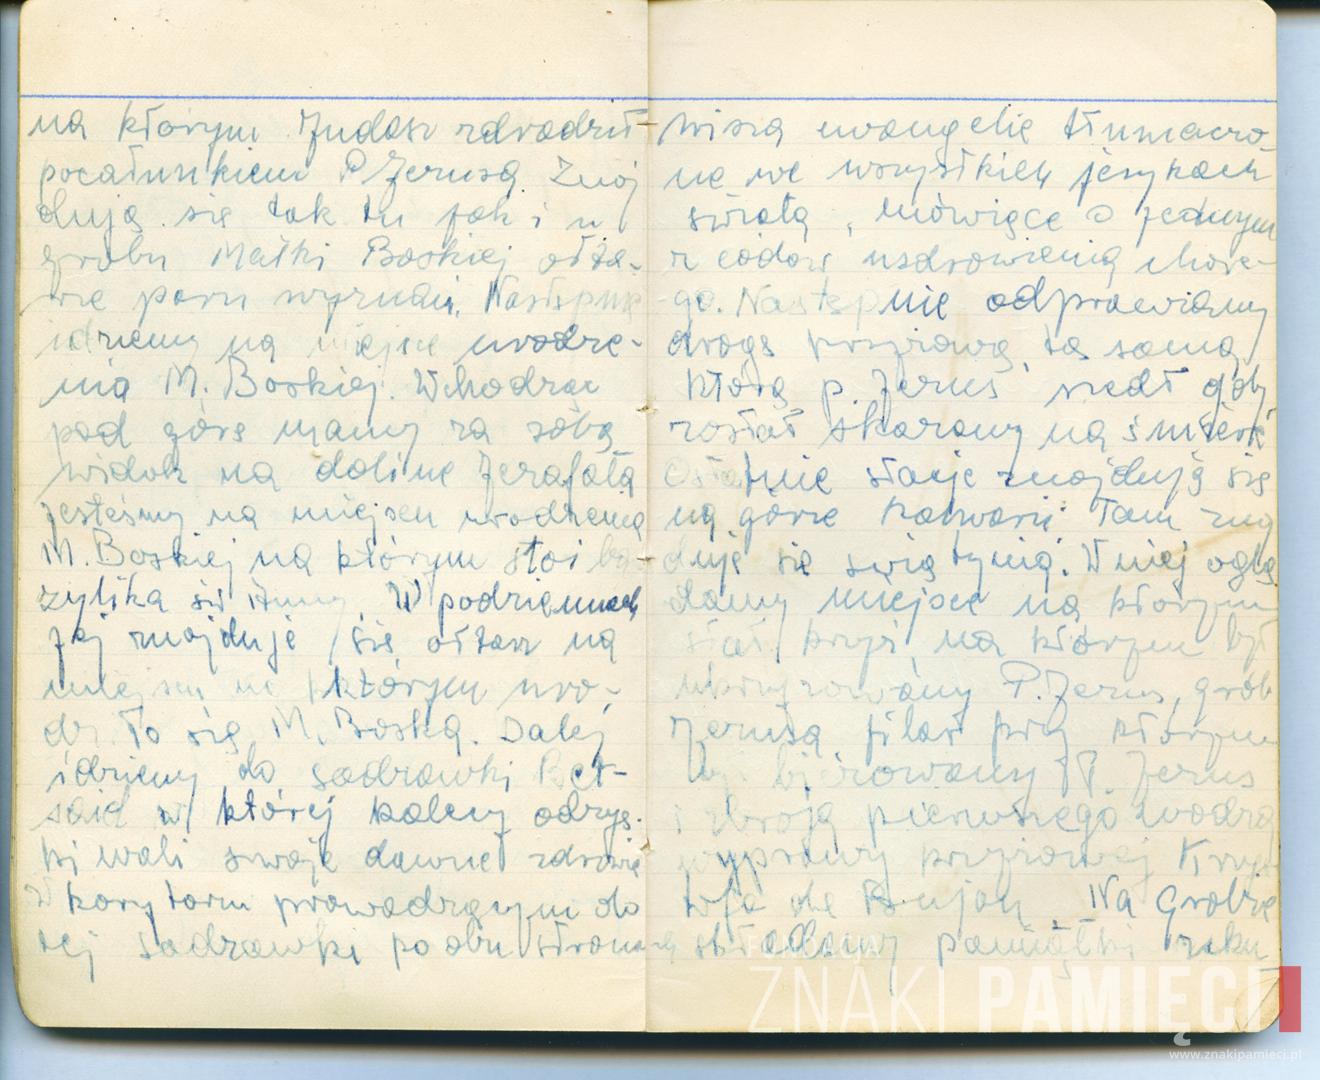 na którym Judasz zdradził
pocałunkiem P. Jezusa. Znaj
dują się tak tu jak i u
grobu Matki Boskiej ołta-
rze paru wyznań. Następnie
idziemy na miejsce urodze-
nia M. Boskiej. Wchodząc
pod górę mamy za sobą
widok na dolinę Jezafata
Jesteśmy na miejscu urodzenia
M. Boskiej na którym stoi ba
zylika św Anny. W podziemiach
jej znajduje się ołtarz na
miejscu na którym uro-
dziła się M. Boska. Dalej
idziemy do sadzawki Bet-
said w której kalecy odzys-
ki wali swoje dawne zdrowie
W korytarzu prowadzącym do
tej sadzawki po obu stronach
wiszą ewangelie tłumaczo-
ne we wszystkich językach
świata, mówiące o jednym
z cudów uzdrowienia chore-
go. Następnie odprawiamy
drogę krzyżową, tą samą
którą p. Jezus szedł gdy
został skazany na śmierć
Ostatnie stacje znajdują się
na górze Kalwarii. Tam znaj
duje się świątynia. W niej oglą
damy miejsce na którym
stał krzyż na którym był
ukrzyżowany P. Jezus, grób
Jezusa, filar przy którym
był biczowany P. Jezus
i zbroja pierwszego wodza
wyprawy krzyżowej Krzy
tofa de Bujon. Na Grobie
składamy pamiątki
FUNDACJA
ZNAKI PAMIĘCI
www.znakipamieci.pl